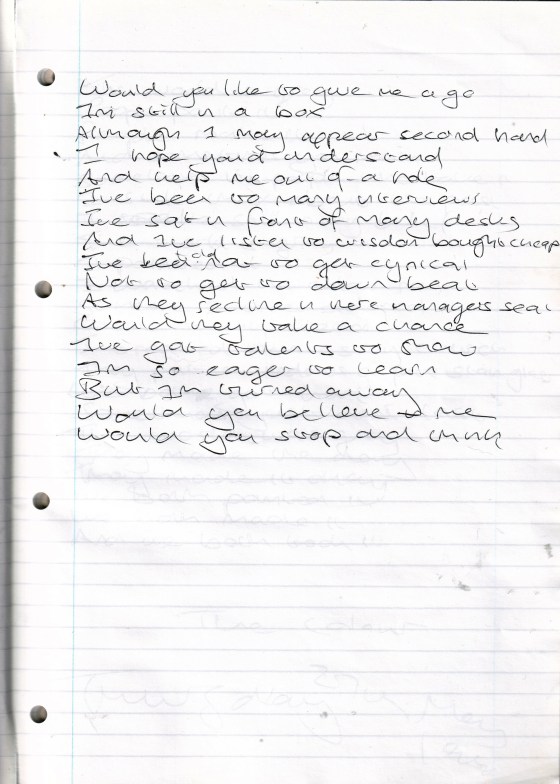 Would you like to give me a go
Im still in a box
Although I may appear second hand
I hope you'd understand
And help me out of a hole
I've been to many interviews
I've sat in front of many desks
And I've listen to wisdom bought cheap
I've tried not to get cynical
Not to get to down beat
As they recline in there managers seat
Would they take a chance
I've got talents to show
Im so eager to learn
But Im turned away
Would you believe in me
Would you stop and think